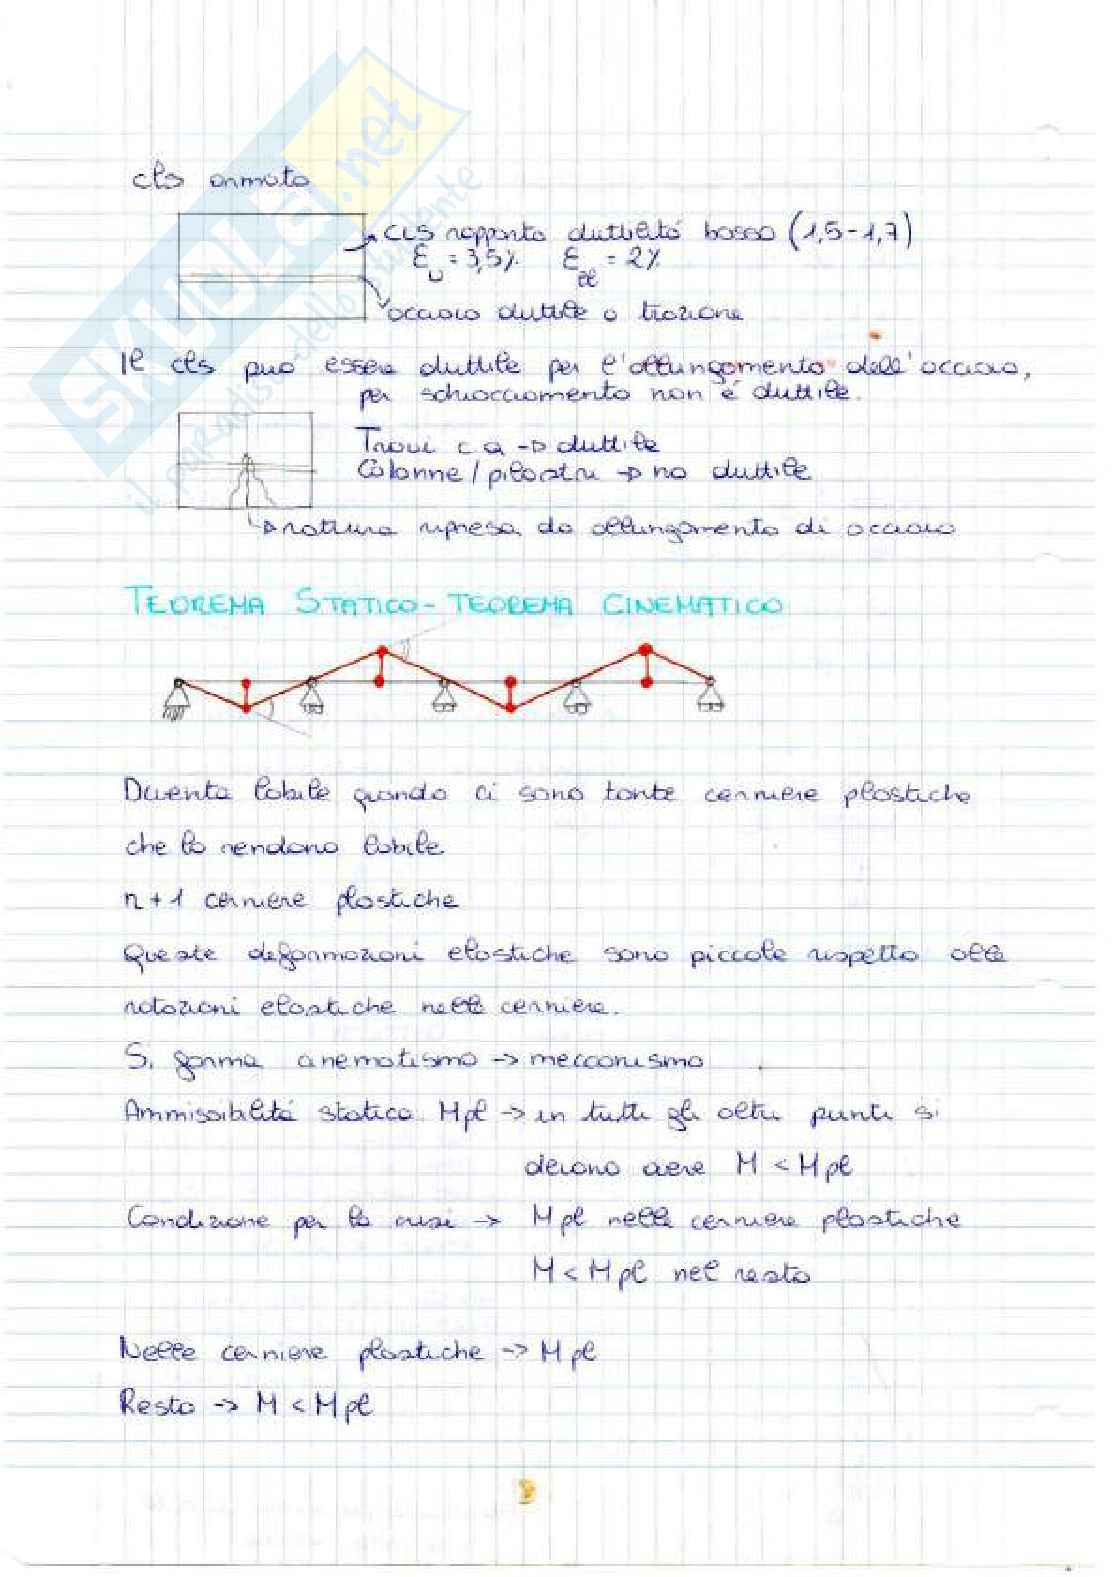 cls armato
CLS rapporto duttilità basso (1,5-1,7)
εu = 3,5% εel = 2%
acciaio duttile a trazione
Il cls può essere duttile per l'allungamento dell'acciaio,
per schiacciamento non è duttile.
Travi c.a → duttile
Colonne/pilastri → no duttile
rottura ripresa da allungamento di acciaio
TEOREMA STATICO - TEOREMA CINEMATICO
Diventa labile quando ci sono tante cerniere plastiche
che lo rendono labile
n+1 cerniere plastiche
Queste deformazioni elastiche sono piccole rispetto alle
rotazioni elastiche nelle cerniere.
Si forma cinematismo → meccanismo
Ammissibilità statica Mpl → in tutti gli altri punti si
devono avere M < Mpl
Condizione per la crisi → Mpl nelle cerniere plastiche
M < Mpl nel resto
Nelle cerniere plastiche → Mpl
Resto → M < Mpl
SKUOLA.net
il paradiso dello studente